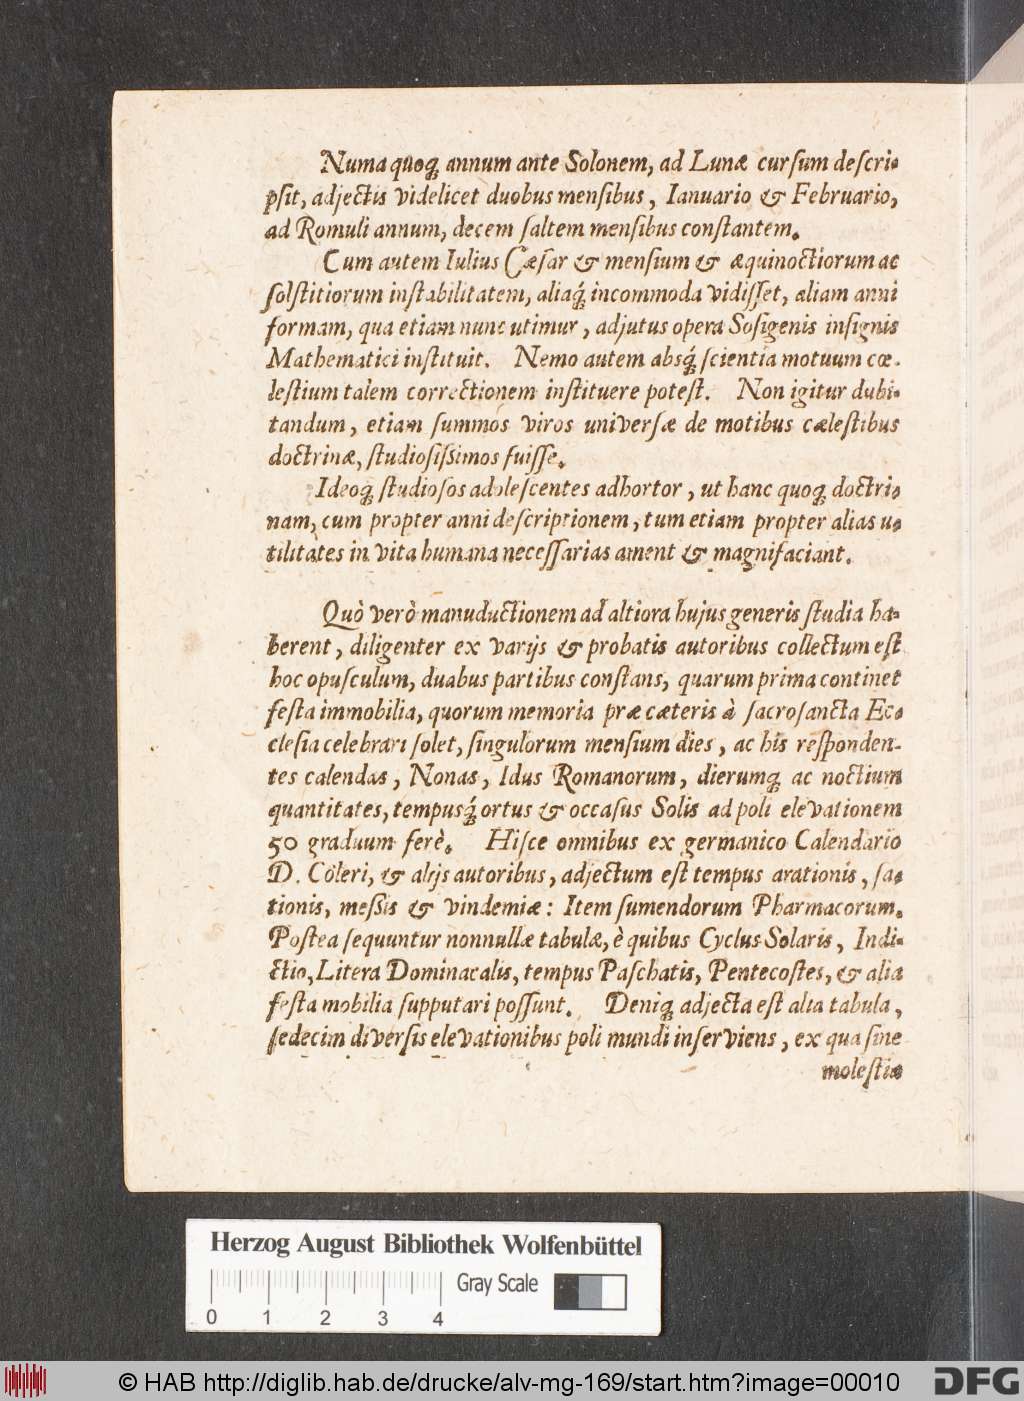 Numa quoq́; annum ante Solonem, ad Lunæ curſum deſcri-
pſit, adjectis videlicet duobus menſibus, Ianuario & Februario,
ad Romuli annum, decem ſaltem menſibus conſtantem.
Cum autem Iulius Cæſar & menſium & æquinoctiorum ac
ſolſtitiorum inſtabilitatem, aliaq́; incommoda vidiſſet, aliam anni
formam, qua etiam nunc utimur, adjutus opera Soſigenis inſignis
Mathematici inſtituit. Nemo autem absq́; ſcientia motuum cœ-
leſtium talem correctionem inſtituere poteſt. Non igitur dubi-
tandum, etiam ſummos viros univerſæ de motibus cæleſtibus
doctrinæ, ſtudioſiſsimos fuiſſe.
Ideoq; ſtudioſos adoleſcentes adhortor, ut hanc quoq; doctri-
nam, cum propter anni deſcriptionem, tum etiam propter alias u-
tilitates in vita humana neceſſarias ament & magnifaciant.
Quò verò manuductionem ad altiora hujus generis ſtudia ha-
berent, diligenter ex varijs & probatis autoribus collectum eſt
hoc opuſculum, duabus partibus conſtans, quarum prima continet
feſta immobilia, quorum memoria præ cæteris à ſacroſancta Ec-
cleſia celebrari ſolet, ſingulorum menſium dies, ac his reſponden-
tes calendas, Nonas, Idus Romanorum, dierumq; ac noctium
quantitates, tempusq́; ortus & occaſus Solis ad poli elevationem
50 graduum ferè. Hiſce omnibus ex germanico Calendario
D. Cöleri, & alijs autoribus, adjectum eſt tempus arationis, ſa-
tionis, meſsis & vindemiæ: Item ſumendorum Pharmacorum.
Poſtea ſequuntur nonnullæ tabulæ, è quibus Cyclus Solaris, Indi-
ctio, Litera Dominicalis, tempus Paſchatis, Pentecoſtes, & alia
feſta mobilia ſupputari poſſunt. Deniq; adjecta eſt alia tabula,
ſedecim diverſis elevationibus poli mundi inſerviens, ex qua ſine
moleſtia
Herzog August Bibliothek Wolfenbüttel
Gray Scale
0 1 2 3 4
© HAB http://diglib.hab.de/drucke/alv-mg-169/start.htm?image=00010
DFG